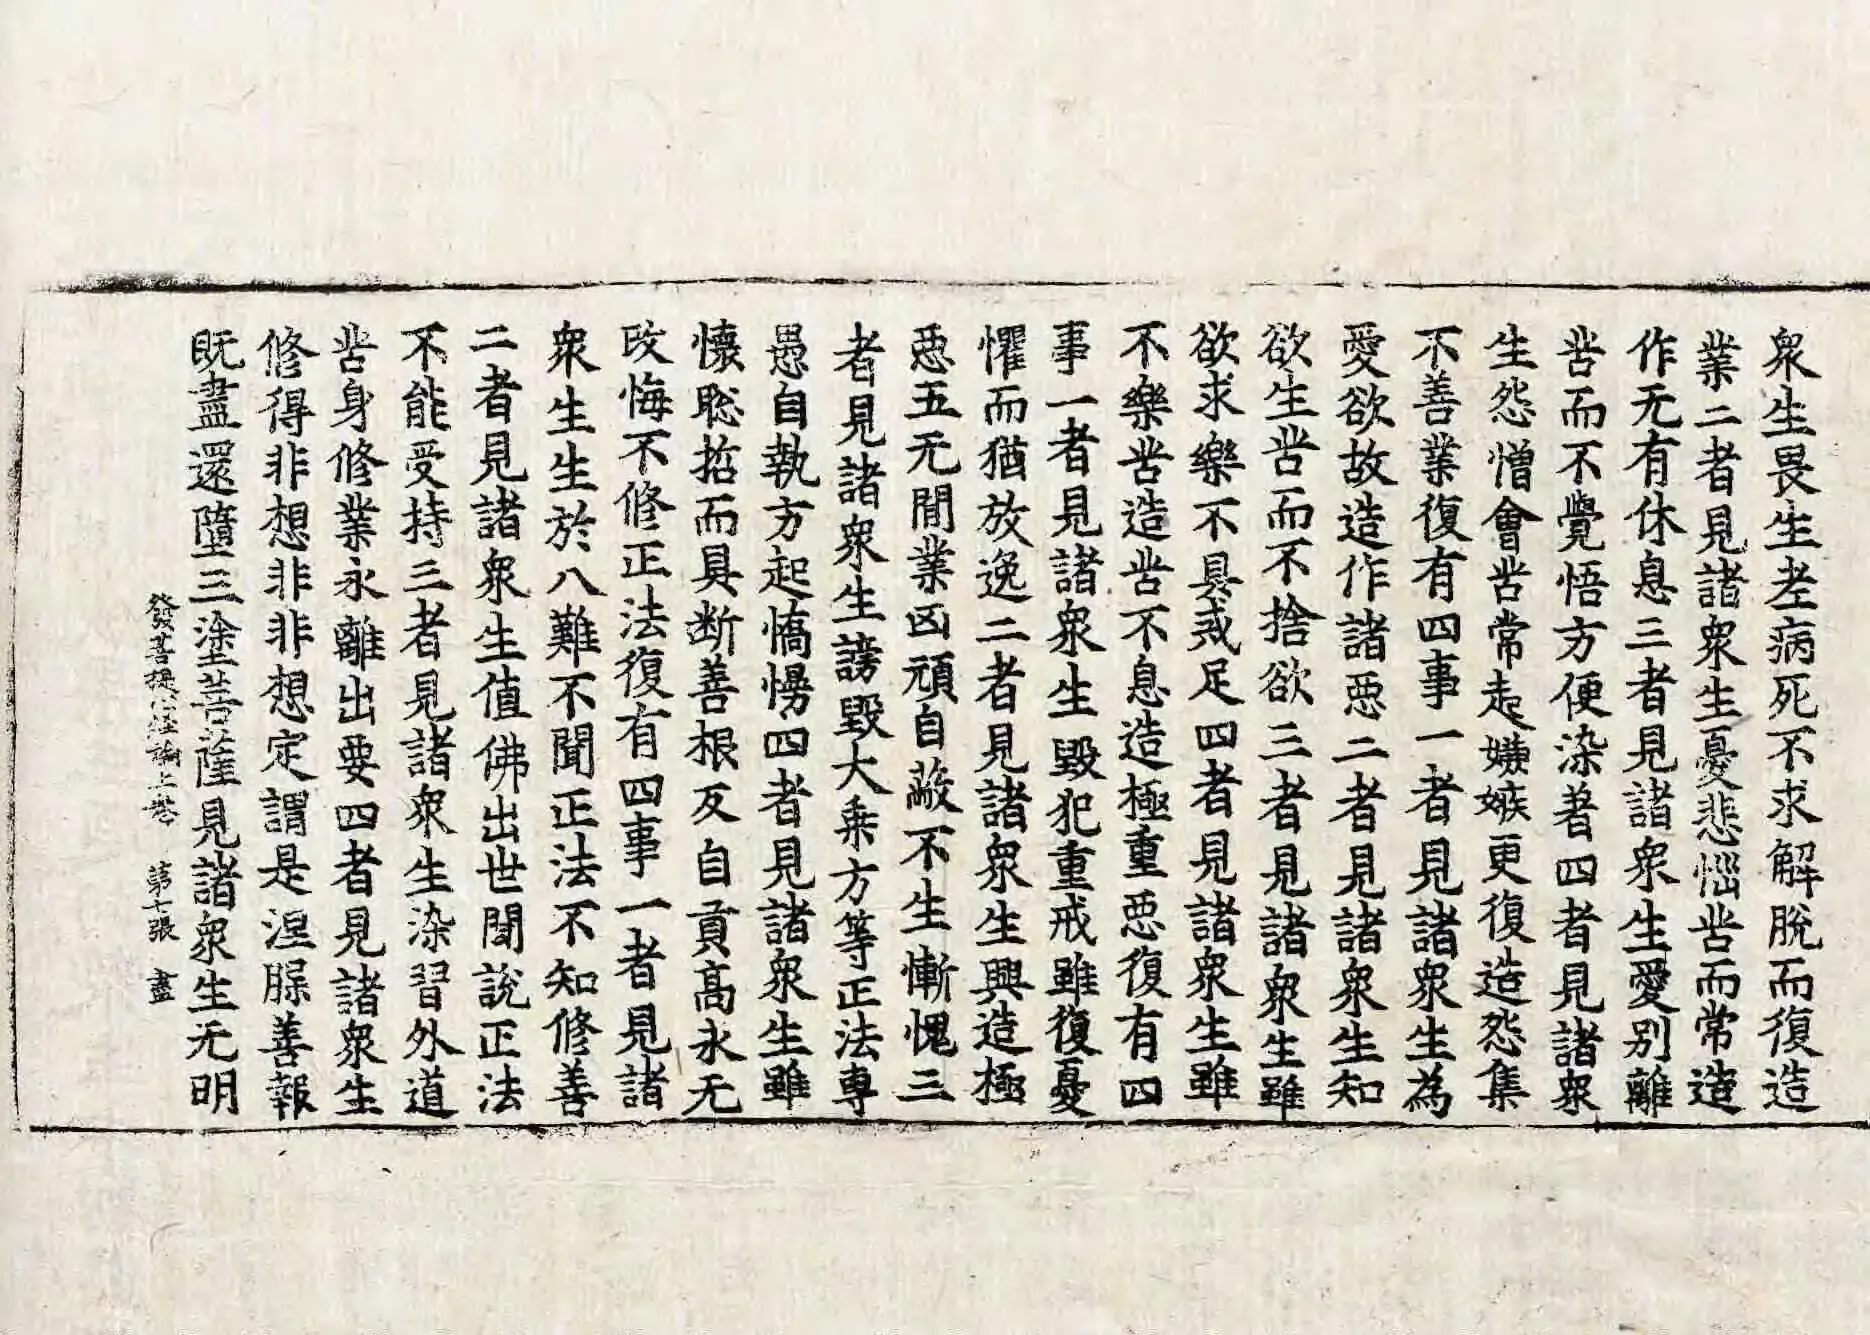 衆生畏生老病死不求解脫而復造
業二者見諸衆生憂悲惱苦而常造
作无有休息三者見諸衆生愛別離
苦而不覺悟方便染著四者見諸衆
生怨憎會苦常起嫌嫉更復造怨集
不善業復有四事一者見諸衆生為
愛欲故造作諸惡二者見諸衆生知
欲生苦而不捨欲三者見諸衆生雖
欲求樂不具戒足四者見諸衆生雖
不樂苦造苦不息造極重惡復有四
事一者見諸衆生毀犯重戒雖復憂
懼而猶放逸二者見諸衆生興造極
惡五无閒業凶頑自蔽不生慚愧三
者見諸衆生謗毀大乘方等正法專
愚自執方起憍慢四者見諸衆生雖
懷聡哲而具断善根反自貢高永无
改悔不修正法復有四事一者見諸
衆生生於八難不聞正法不知修善
二者見諸衆生值佛出世聞說正法
不能受持三者見諸衆生染習外道
苦身修業永離出要四者見諸衆生
修得非想非非想定謂是涅脲善報
旣盡還墮三塗菩薩見諸衆生无明
發菩提心經論上卷 第七張 盡